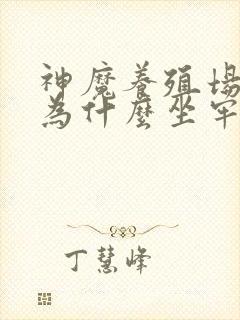 神魔養殖場
為什麼坐牢
丁慧峰